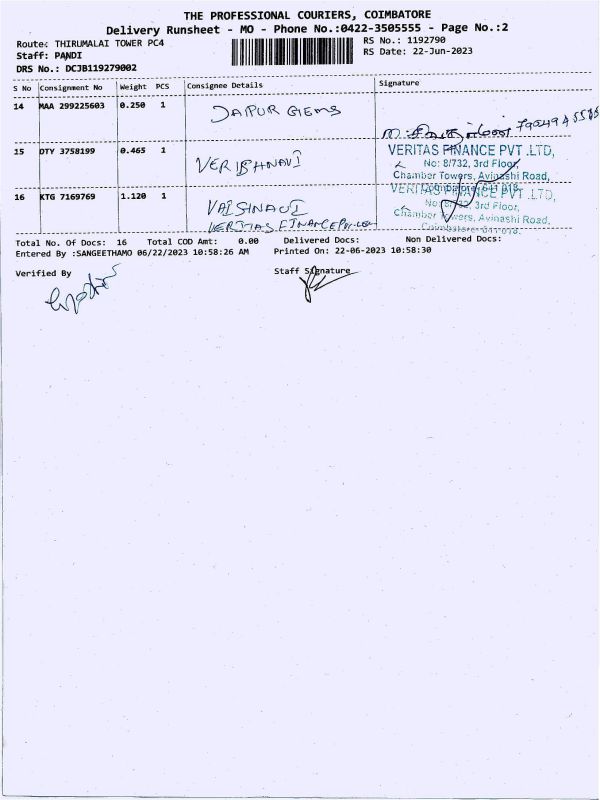 THE PROFESSIONAL COURIERS, COIMBATORE
Delivery Runsheet - MO - Phone No.:0422-3505555 - Page No.:2
Route: THIRUMALAI TOWER PC4 RS No.: 1192790
Staff: PANDI RS Date: 22-Jun-2023
DRS No.: DCJB119279002
S No Consignment No Weight PCS Consignee Details Signature
14 MAA 299225603 0.250 1 JAIPUR GEMS
15 DTY 3758199 0.465 1 VERITAS FINANCE PVT .LTD,
No: 8/732, 3rd Floor,
Chamber Towers, Avinashi Road,
Coimbatore-641 018.
16 KTG 7169769 1.120 1 VAISINAVI VERITAS FINANCE PVT .LTD,
VERITAS FINANCE PVT. LTD No: 8/732, 3rd Floor,
Chamber Towers, Avinashi Road,
Coimbatore-641 018.
Total No. Of Docs: 16 Total COD Amt: 0.00 Delivered Docs: Non Delivered Docs:
Entered By :SANGEETHAMO 06/22/2023 10:58:26 AM Printed On: 22-06-2023 10:58:30
Verified By Staff Signature